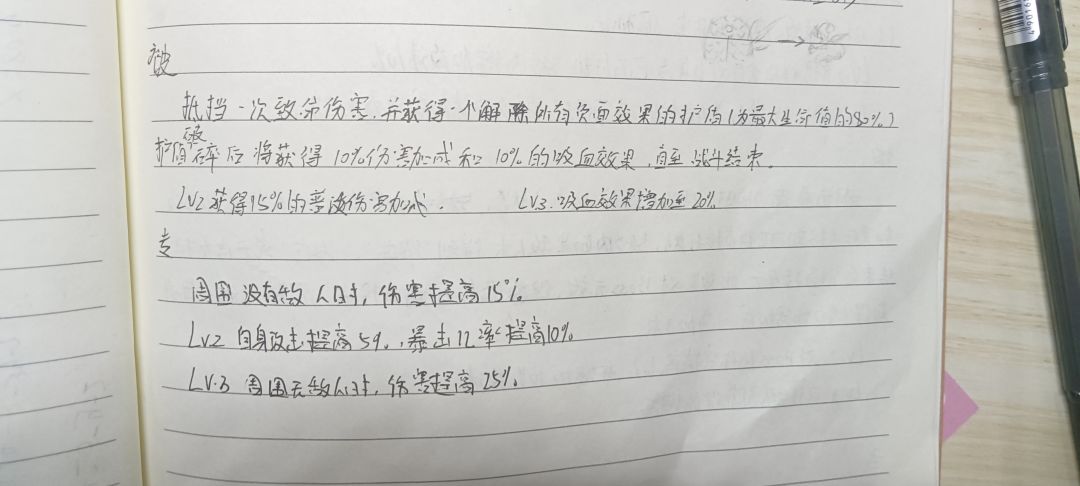 被
抵挡一次致命伤害,并获得一个解除所有负面效果的护盾(为最大生命值的80%)
护盾破碎后将获得10%伤害加成和10%的吸血效果,直至战斗结束。
LV2获得15%的普攻伤害加成. LV3.吸血效果增加至20%
专
周围没有敌人时,伤害提高15%
LV.2 自身攻击提高5%.,暴击几率提高10%
LV.3 周围无敌人时,伤害提高25%